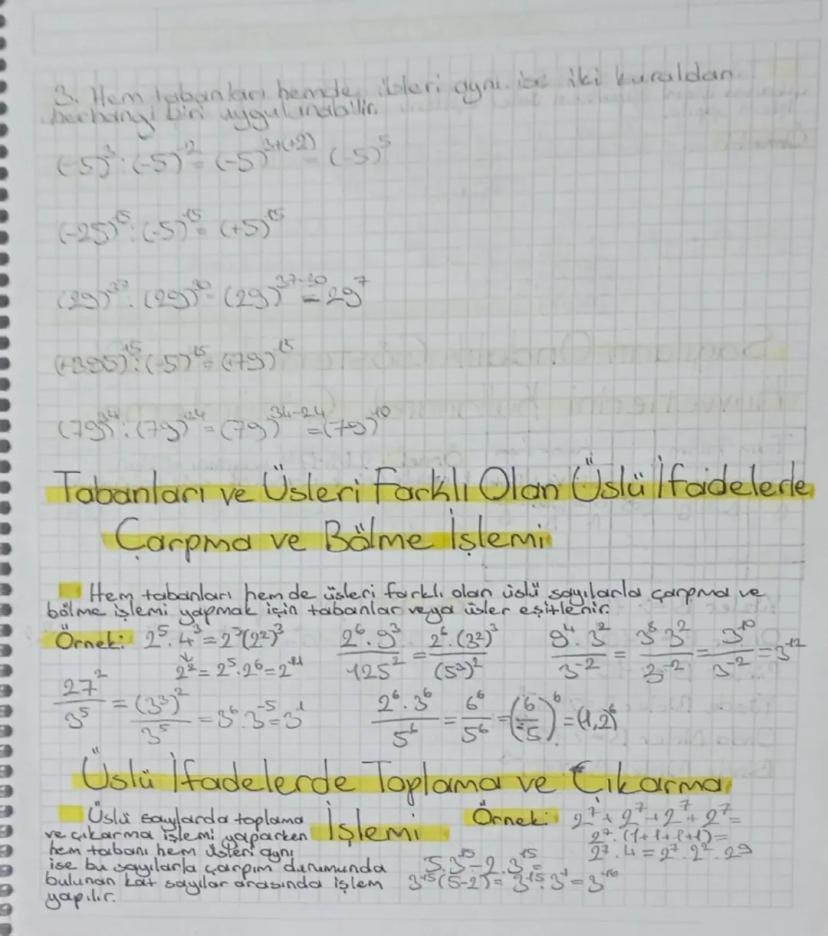 3. Hem tabanları hemde üsleri aynı ise iki kuraldan
herhangi biri uygulanabilir.
(-5)³:(-5)⁻²=(-5)³⁺⁽⁺²⁾=(-5)⁵
(-25)¹⁵:(-5)¹⁵=(+5)¹⁵
(29)³⁷:(29)³⁰=(29)³⁷⁻³⁰=29⁷
(-395)¹⁵:(-5)¹⁵=(79)¹⁵
(79)³⁴:(79)²⁴=(79)³⁴⁻²⁴=(79)¹⁰
Tabanları ve Üsleri Farklı Olan Üslü İfadelerle
Çarpma ve Bölme İşlemi
Hem tabanları hem de üsleri farklı olan üslü sayılarla çarpma ve
bölme işlemi yapmak için tabanlar veya üsler eşitlenir.
Örnek: 2⁵.4³=2⁵(2²)³
2²=2⁵.2⁶=2¹¹
2⁶.9³/125²=2⁶.(3²)³/(5³)²
9⁴.3²/3⁻²=3⁸3²/3⁻²=3¹⁰/3⁻²=3¹²
27²/3⁵=(3³)²/3⁵=3⁶.3⁻⁵=3¹
2⁶.3⁶/5⁶=6⁶/5⁶=(6/5)⁶=(1,2)⁶
Üslü İfadelerde Toplama ve Çıkarma
İşlemi
Üslü sayılarda toplama
ve çıkarma işlemi yaparken
hem tabanı hem üsleri aynı
ise bu sayılarla çarpım durumunda
bulunan kat sayılar arasında işlem
yapılır.
Örnek: 2⁷+2⁷+2⁷+2⁷=
2⁷.(1+1+1+1)=
2⁷.4=2⁷.2².29
5.3¹⁵-2.3¹⁵=
3¹⁵(5-2)=3¹⁵.3¹=3¹⁶